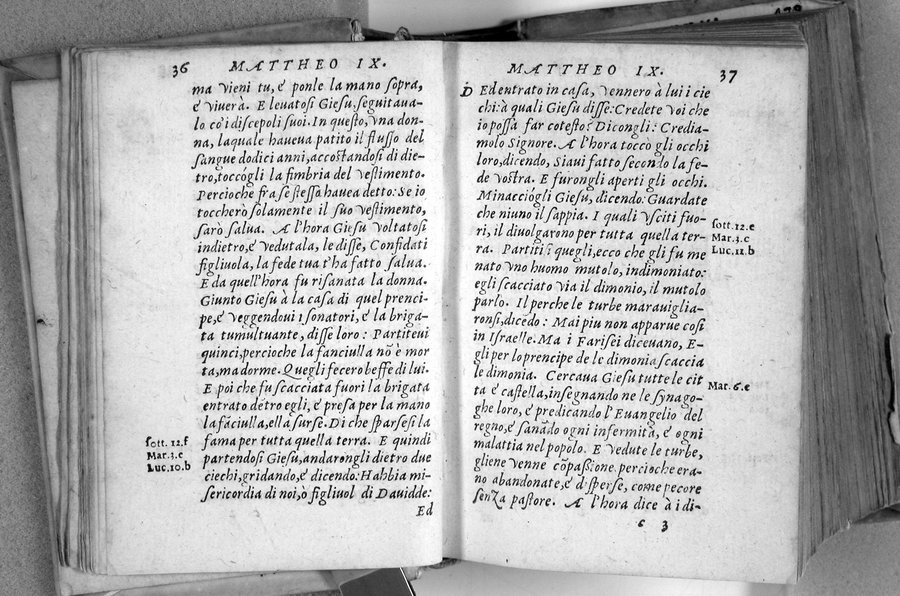 36 MATTHEO IX.
ma vieni tu, e ponle la mano sopra,
e viuerà. E leuatosi Giesu, seguitaua-
lo co i discepoli suoi. In questo, vna don-
na, laquale haueua patito il flusso del
sangue dodici anni, accostandosi di die-
tro, toccògli la fimbria del vestimento.
Percioche fra se stessa hauea detto: Se io
toccherò solamente il suo vestimento,
sarò salua. A l'hora Giesu voltatosi
indietro, e vedutala, le disse, Confidati
figliuola, la fede tua t'ha fatto salua.
E da quell'hora fu risanata la donna.
Giunto Giesu à la casa di quel prenci-
pe, e veggendoui i sonatori, e la briga-
ta tumultuante, disse loro: Partiteui
quinci, percioche la fanciulla nō è mor
ta, ma dorme. Quegli fecero beffe di lui.
E poi che fu scacciata fuori la brigata
entrato dētro egli, e presa per la mano
la fāciulla, ella surse. Di che sparsesi la
fama per tutta quella terra. E quindi
partendosi Giesu, andarongli dietro due
ciechi, gridando, e dicendo: Habbia mi-
sericordia di noi, ò figliuol di Dauidde:
Ed
sott. 12.f
Mar. 3.c
Luc. 10.b
MATTHEO IX. 37
D Ed entrato in casa, vennero à lui i cie
chi: à quali Giesu disse: Credete voi che
io possa far cotesto? Dicongli: Credia-
molo Signore. A l'hora toccò gli occhi
loro, dicendo, Siaui fatto secondo la fe-
de vostra. E furongli aperti gli occhi.
Minacciògli Giesu, dicendo: Guardate
che niuno il sappia. I quali vsciti fuo-
ri, il diuolgarono per tutta quella ter-
ra. Partiti quegli, ecco che gli fu me
nato vno huomo mutolo, indimoniato:
egli scacciato via il dimonio, il mutolo
parlò. Il perche le turbe marauiglia-
ronsi, dicēdo: Mai piu non apparue cosi
in Israelle. Ma i Farisei diceuano, E-
gli per lo prencipe de le dimonia scaccia
le dimonia. Cercaua Giesu tutte le cit
tà e castella, insegnando ne le synago-
ghe loro, e predicando l'Euangelio del
regno, e sanādo ogni infermità, e ogni
malattia nel popolo. E vedute le turbe,
gliene venne cōpassione, percioche era-
no abandonate, e disperse, come pecore
senza pastore. A l'hora dice à i di-
6 3
sott. 12.e
Mar. 3.c
Luc. 11.b
Mar. 6.e